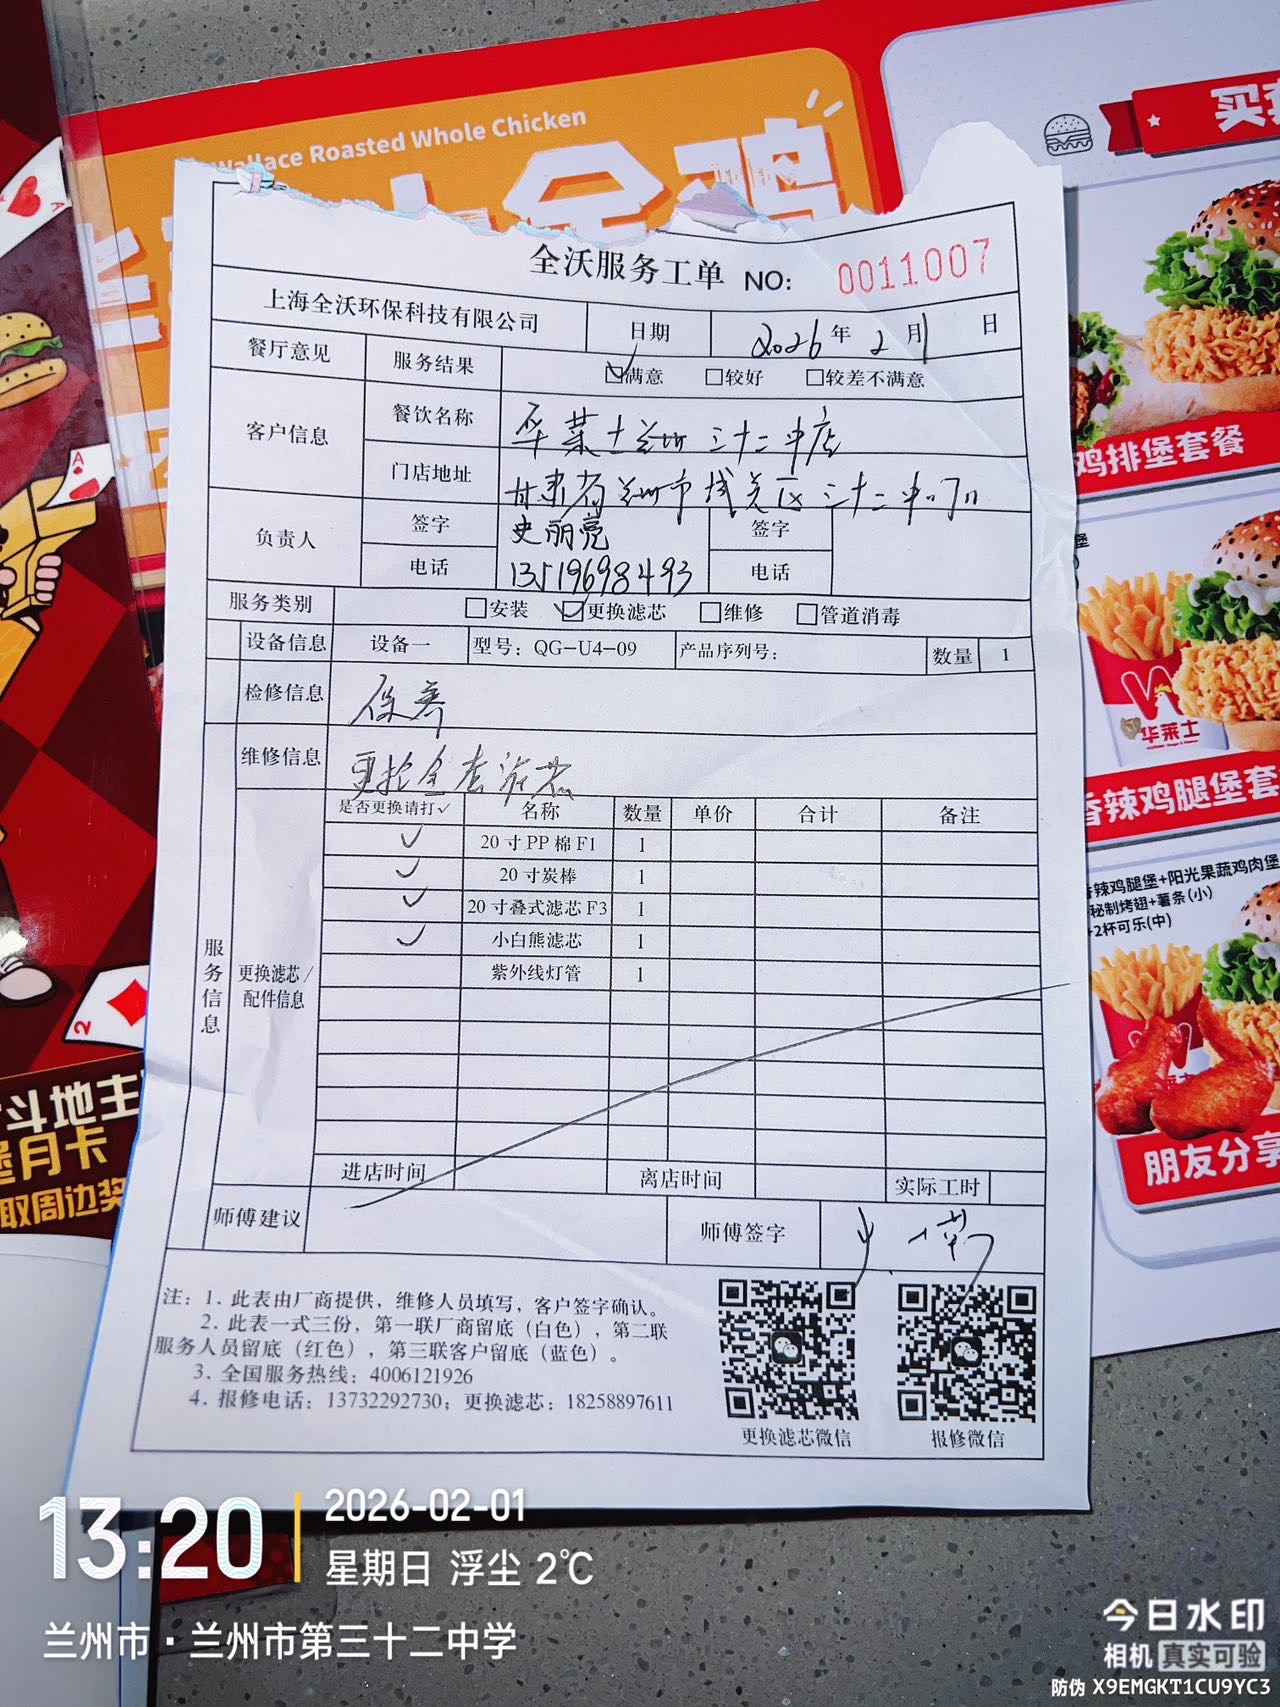 Wallace Roasted Whole Chicken
全鸡
买套
全沃服务工单 NO: 0011007
上海全沃环保科技有限公司 日期 2026年2月1日
餐厅意见 服务结果 ☑满意 □较好 □较差不满意
客户信息 餐饮名称 华莱士兰州三十二中店
门店地址 甘肃省兰州市城关区三十二中门口
负责人 签字 史丽亮 签字
电话 13519698493 电话
服务类别 □安装 ☑更换滤芯 □维修 □管道消毒
设备信息 设备一 型号：QG-U4-09 产品序列号： 数量 1
检修信息 保养
维修信息 更换全套滤芯
服务信息
更换滤芯/配件信息
是否更换请打✓ 名称 数量 单价 合计 备注
✓ 20寸PP棉F1 1
✓ 20寸炭棒 1
✓ 20寸叠式滤芯F3 1
✓ 小白熊滤芯 1
紫外线灯管 1
进店时间 离店时间 实际工时
师傅建议 师傅签字
注：1. 此表由厂商提供，维修人员填写，客户签字确认。
2. 此表一式三份，第一联厂商留底（白色），第二联
服务人员留底（红色），第三联客户留底（蓝色）。
3. 全国服务热线：4006121926
4. 报修电话：13732292730；更换滤芯：18258897611
更换滤芯微信 报修微信
鸡排堡套餐
华莱士
香辣鸡腿堡套
香辣鸡腿堡+阳光果蔬鸡肉堡
秘制烤翅+薯条(小)
+2杯可乐(中)
朋友分享
斗地主
堡月卡
取周边奖
13:20
2026-02-01
星期日 浮尘 2℃
兰州市·兰州市第三十二中学
今日水印
相机 真实可验
防伪 X9EMGKT1CU9YC3